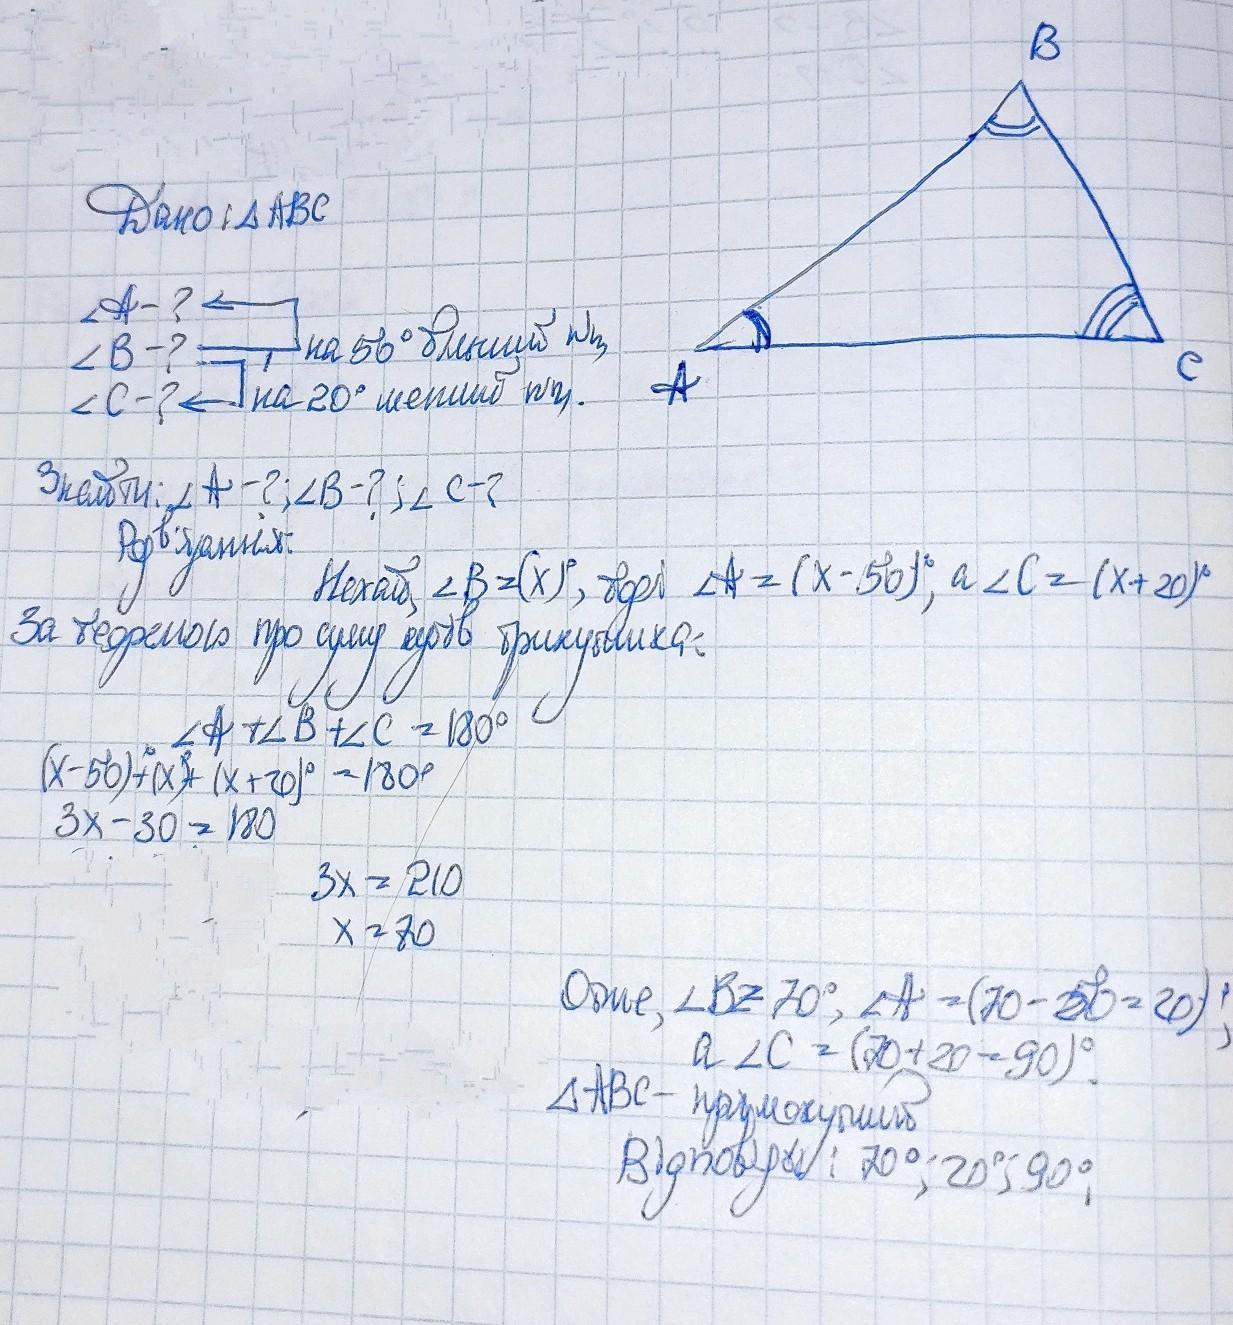 B
Дано: △ABC
∠A-?
∠B-? на 50° більший ніж
∠C-? на 20° менший ніж.
A
C
Знайти: ∠A-?; ∠B-?; ∠C-?
Розв'язання:
Нехай, ∠B=(x)°, тоді ∠A=(x-50)°, а ∠C=(x+20)°
За теоремою про суму кутів трикутника:
∠A+∠B+∠C=180°
(x-50)°+(x)°+(x+20)°=180°
3x-30=180
3x=210
x=70
Отже, ∠B=70°, ∠A=(70-50=20)°;
а ∠C=(70+20=90)°.
△ABC- прямокутний
Відповідь: 70°; 20°; 90°;